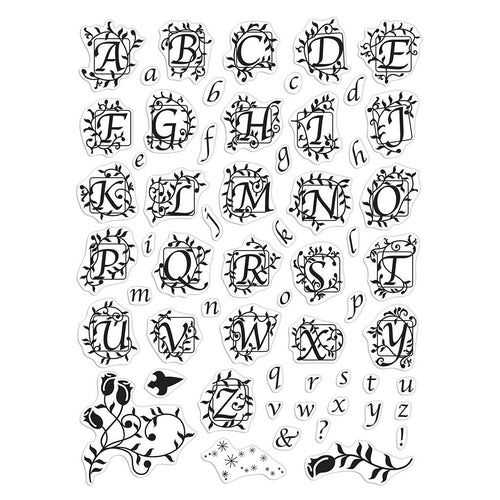 A B C D E
a b c d
F G H I J
e f g h
K L M N O
i j k l
P Q R S T
m n o p
U V W X Y
Z q r s t u
v w x y z
& ? !